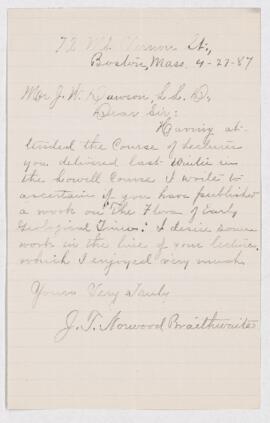 72 Mt. Vernon St.,
Boston, Mass. 4-27-87
Mr. J. W. Dawson, L.L.D.,
Dear Sir:
Having at-
tended the Course of Lectures
you delivered last Winter in
the Lowell Course I write to
ascertain if you have published
a work on "The Flora of Early
Geological Times." I desire some
work in the line of your lecture,
which I enjoyed very much.
Yours Very Truly,
J. T. Norwood Braithwaite